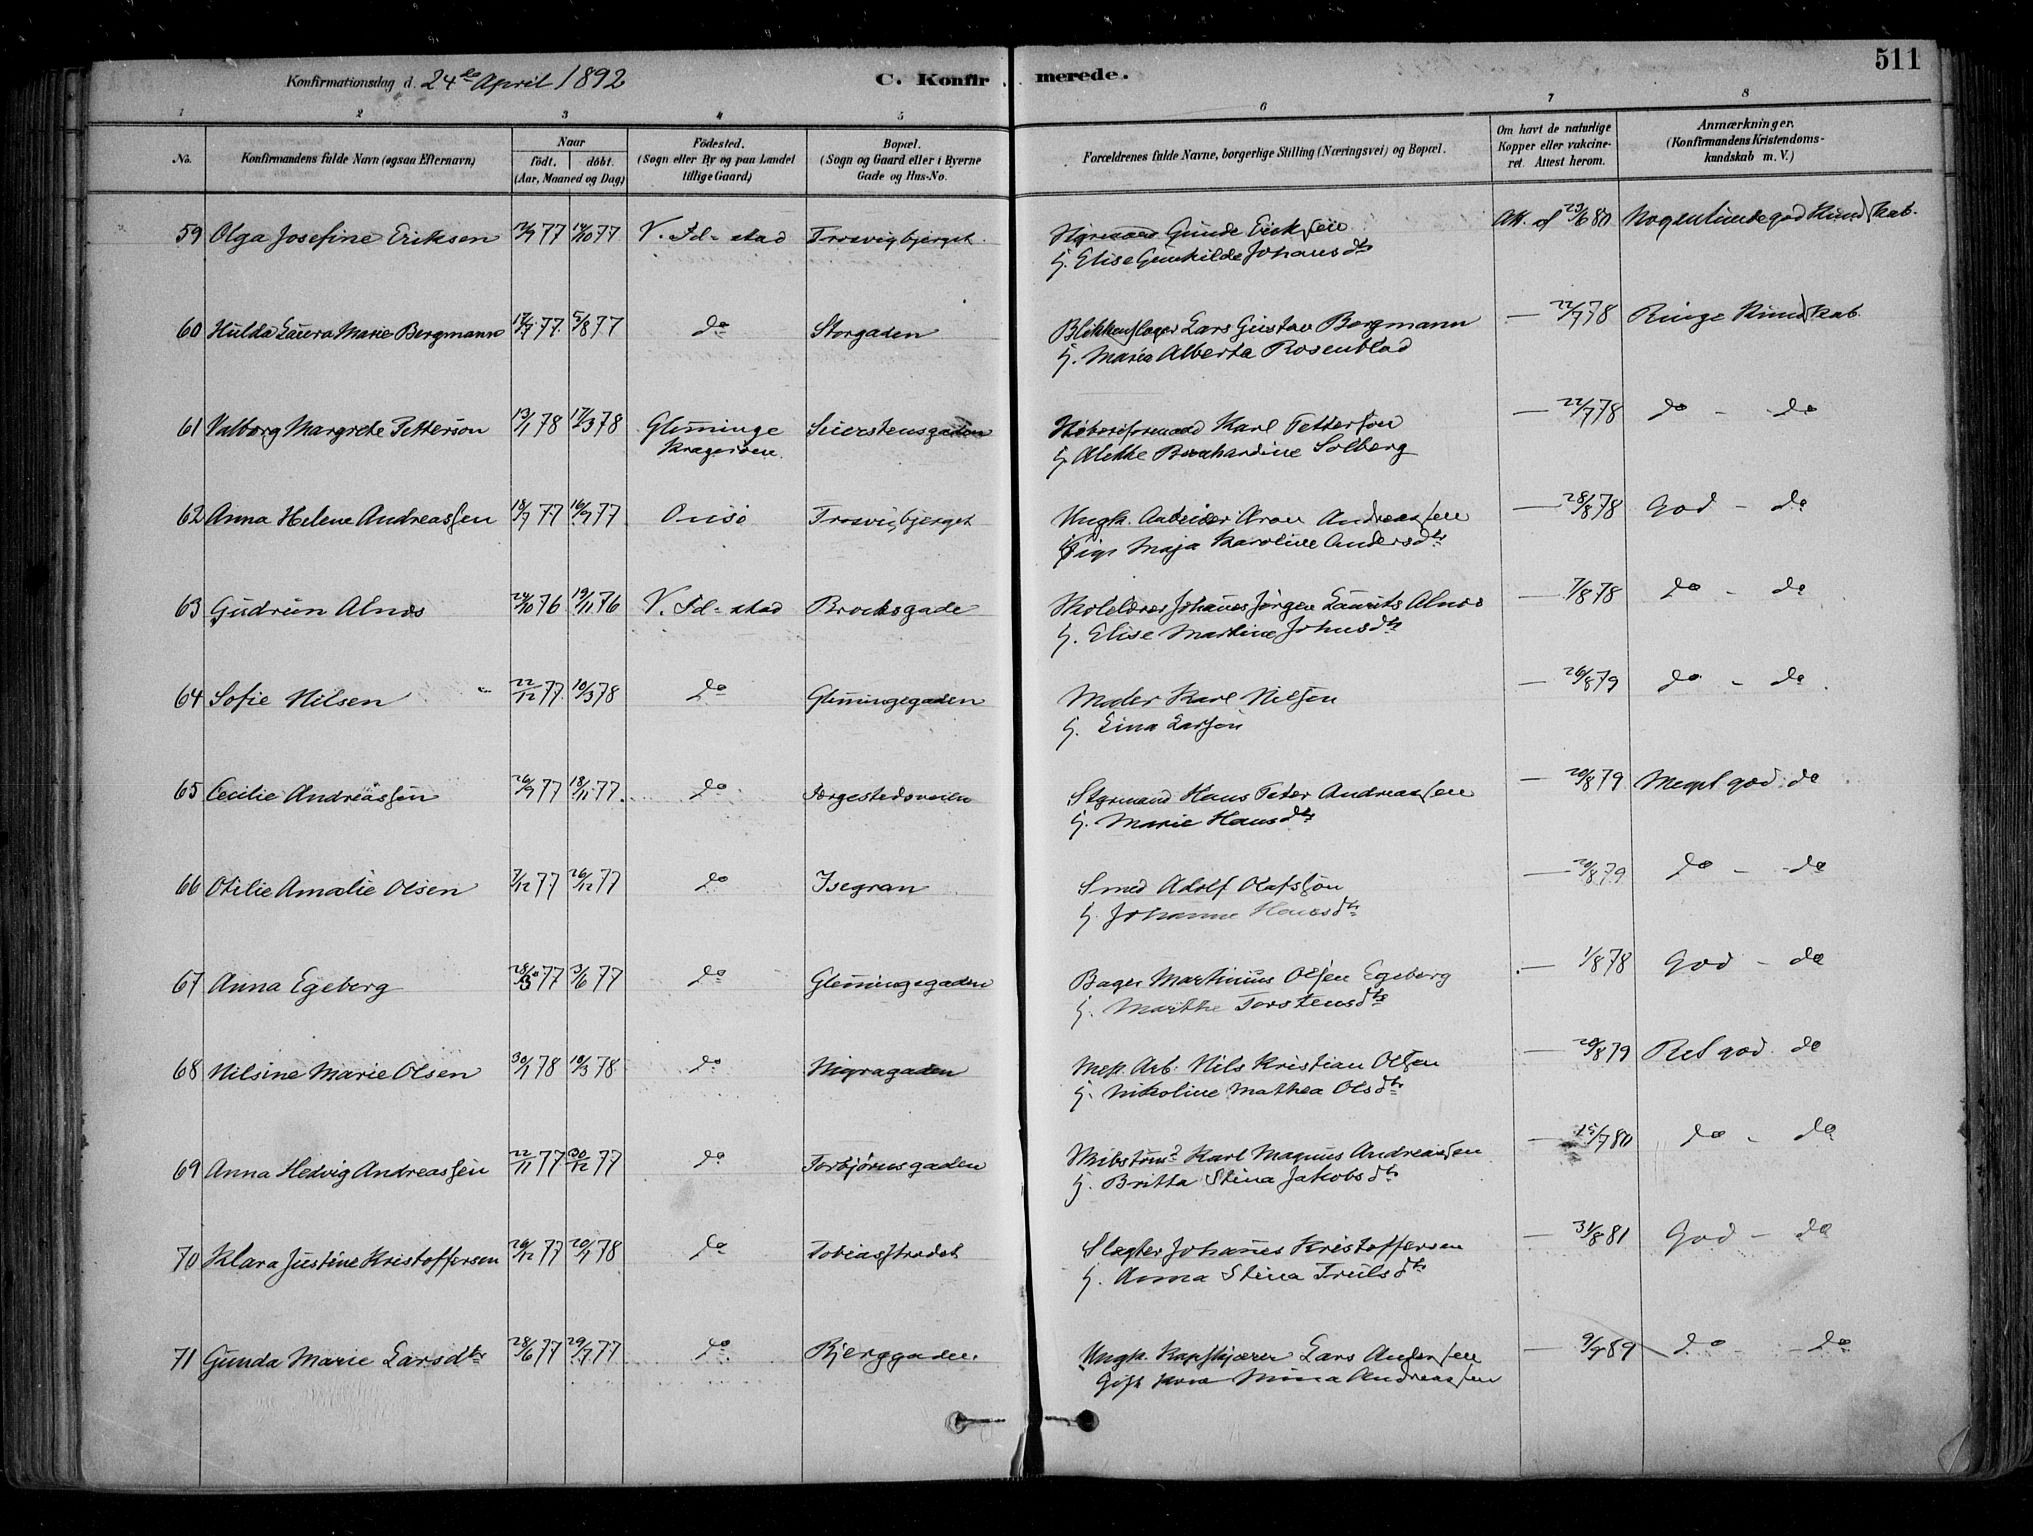 511
Konfirmationsdag d. 24de April 1892 C. Konfirmerede.
1 2 3 4 5 6 7 8
No. Konfirmandens fulde Navn (ogsaa Efternavn) Naar födt. döbt. (Aar, Maaned og Dag) Födested. (Sogn eller By og paa Landet tillige Gaard) Bopæl. (Sogn og Gaard eller i Byerne Gade og Hus-No. Forældrenes fulde Navne, borgerlige Stilling (Næringsvei) og Bopæl. Om havt de naturlige Kopper eller vakcineret. Attest herom. Anmærkninger. (Konfirmandens Kristendomskundskab m. V.)
59 Olga Josefine Eriksen 12/9 77 14/10 77 V. Fd-stad Trosvigbjerget Styrmand Gunde Eriksen Att. af 23/6 80 Nogenlunde god Kundskab.
H. Elise Gunhilde Johansdtr
60 Hulda Laura Marie Bergmann 17/7 77 5/8 77 do Storgaden Blikkenslager Lars Gustav Bergmann — 22/7 78 Ringe Kundskab.
H. Maria Alberta Rosenblad
61 Valborg Margrete Petterson 13/1 78 17/3 78 Glemminge Krageröen. Sieverstensgaden Karl Petterson — 22/7 78 do - do
H. Alekke Bernhardine Solberg
62 Anna Helene Andreassen 18/7 77 16/9 77 Onsö Trosvigbjerget Ungk. Arbeider Aron Andreassen — 28/8 78 God - do
Pige Maja Karoline Andersdtr
63 Gudrun Alnæs 24/10 76 19/11 76 V. Fd-stad Brocksgade Skolelærer Johanes Jørgen Laurits Alnæs — 7/8 78 do - do
H. Elise Martine Johnsdtr
64 Sofie Nilsen 22/12 77 10/3 78 do Glemmingegaden Maler Karl Nilsen — 26/8 79 do - do.
H. Lina Larson
65 Cecilie Andreassen 26/9 77 18/11 77. do Torgestedsveien Styrmand Hans Peter Andreassen — 20/8 79 Meget god do
H. Marie Hansdtr
66 Otilie Amalie Olsen 7/12 77 26/12 77 do Isegran Smed Adolf Olafsson — 20/8 79 do - do
H. Johanne Hansdtr
67 Anna Egeberg 28/3 77 3/6 77 do Glemmingegaden Bager Martinius Olsen Egeberg — 1/8 78 God - do
H. Marthe Torstensdtr
68 Nilsine Marie Olsen 30/1 78 10/3 78 do Nigragaden Mek. Arb. Nils Kristian Olsen — 20/8 79 Ret god do
H. Nikoline Mathea Olsdtr
69 Anna Hedvig Andreassen 22/11 77 30/12 77 do Torbjørnsgaden Karl Magnus Andreassen — 15/7 80 do - do
H. Britta Stina Jakobsdtr
70 Klara Justine Kristoffersen 26/12 77 20/1 78 do Tobiasstrædet Slagter Johanes Kristoffersen — 31/8 81 God - do
H. Anna Stina Trulsdtr
71 Gunda Marie Larsdtr 28/6 77 29/7 77 do. Bjerggaden. Ungk. Lars Andersen — 9/9 89 do - do
Gift Kone Mina Andreassen